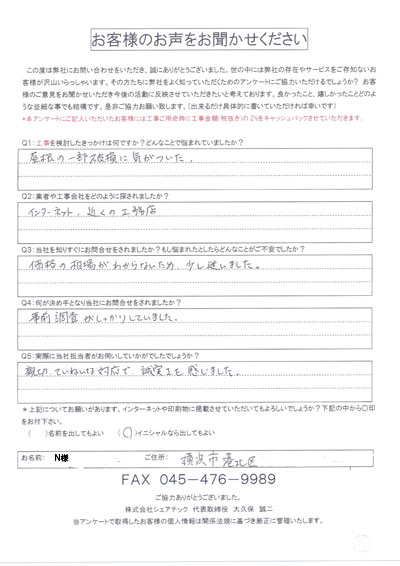 お客様のお声をお聞かせください
この度は弊社にお問い合わせをいただき、誠にありがとうございました。世の中には弊社の存在やサービスをご存知ないお
客様が沢山いらっしゃいます。その方たちに弊社をよく知っていただくためのアンケートにご協力いただけるでしょうか？ お客
様のご意見をお聞かせいただき今後の活動に反映させていただきたいと考えております。良かったこと、嬉しかったことどのよ
うな些細な事でも結構です。是非ご協力お願い致します。（出来るだけ具体的に書いていただければ幸いです）
*本アンケートにご記入いただいたお客様には工事ご用命時に工事金額(税抜き)の 2%をキャッシュバックさせていただきます。
Q1：工事を検討したきっかけは何ですか？どんなことで悩まれていましたか？
屋根の一部破損に気がついた。
Q2：業者や工事会社をどのように探されましたか？
インターネット、近くの工務店
Q3：当社を知りすぐにお問合せをされましたか？もし悩まれたとしたらどんなことがご不安でしたか？
価格の相場がわからないため、少し迷いました。
Q4：何が決め手となり当社にお問合せをされましたか？
事前調査がしっかりしていました。
Q5：実際に当社担当者がお伺いしていかがでしたでしょうか？
親切、ていねいな対応で、誠実さを感じました。
＊上記についてお願いがあります。インターネットや印刷物に掲載させていただいてもよろしいでしょうか？下記の中から〇印
をお付下さい。
（　）名前を出してもよい　（〇）イニシャルなら出してもよい
お名前：　N様　ご住所：　横浜市港北区
FAX 045-476-9989
ご協力ありがとうございました。
株式会社シェアテック 代表取締役 大久保 誠二
当アンケートで取得したお客様の個人情報は関係法規に基づき厳正に管理いたします。